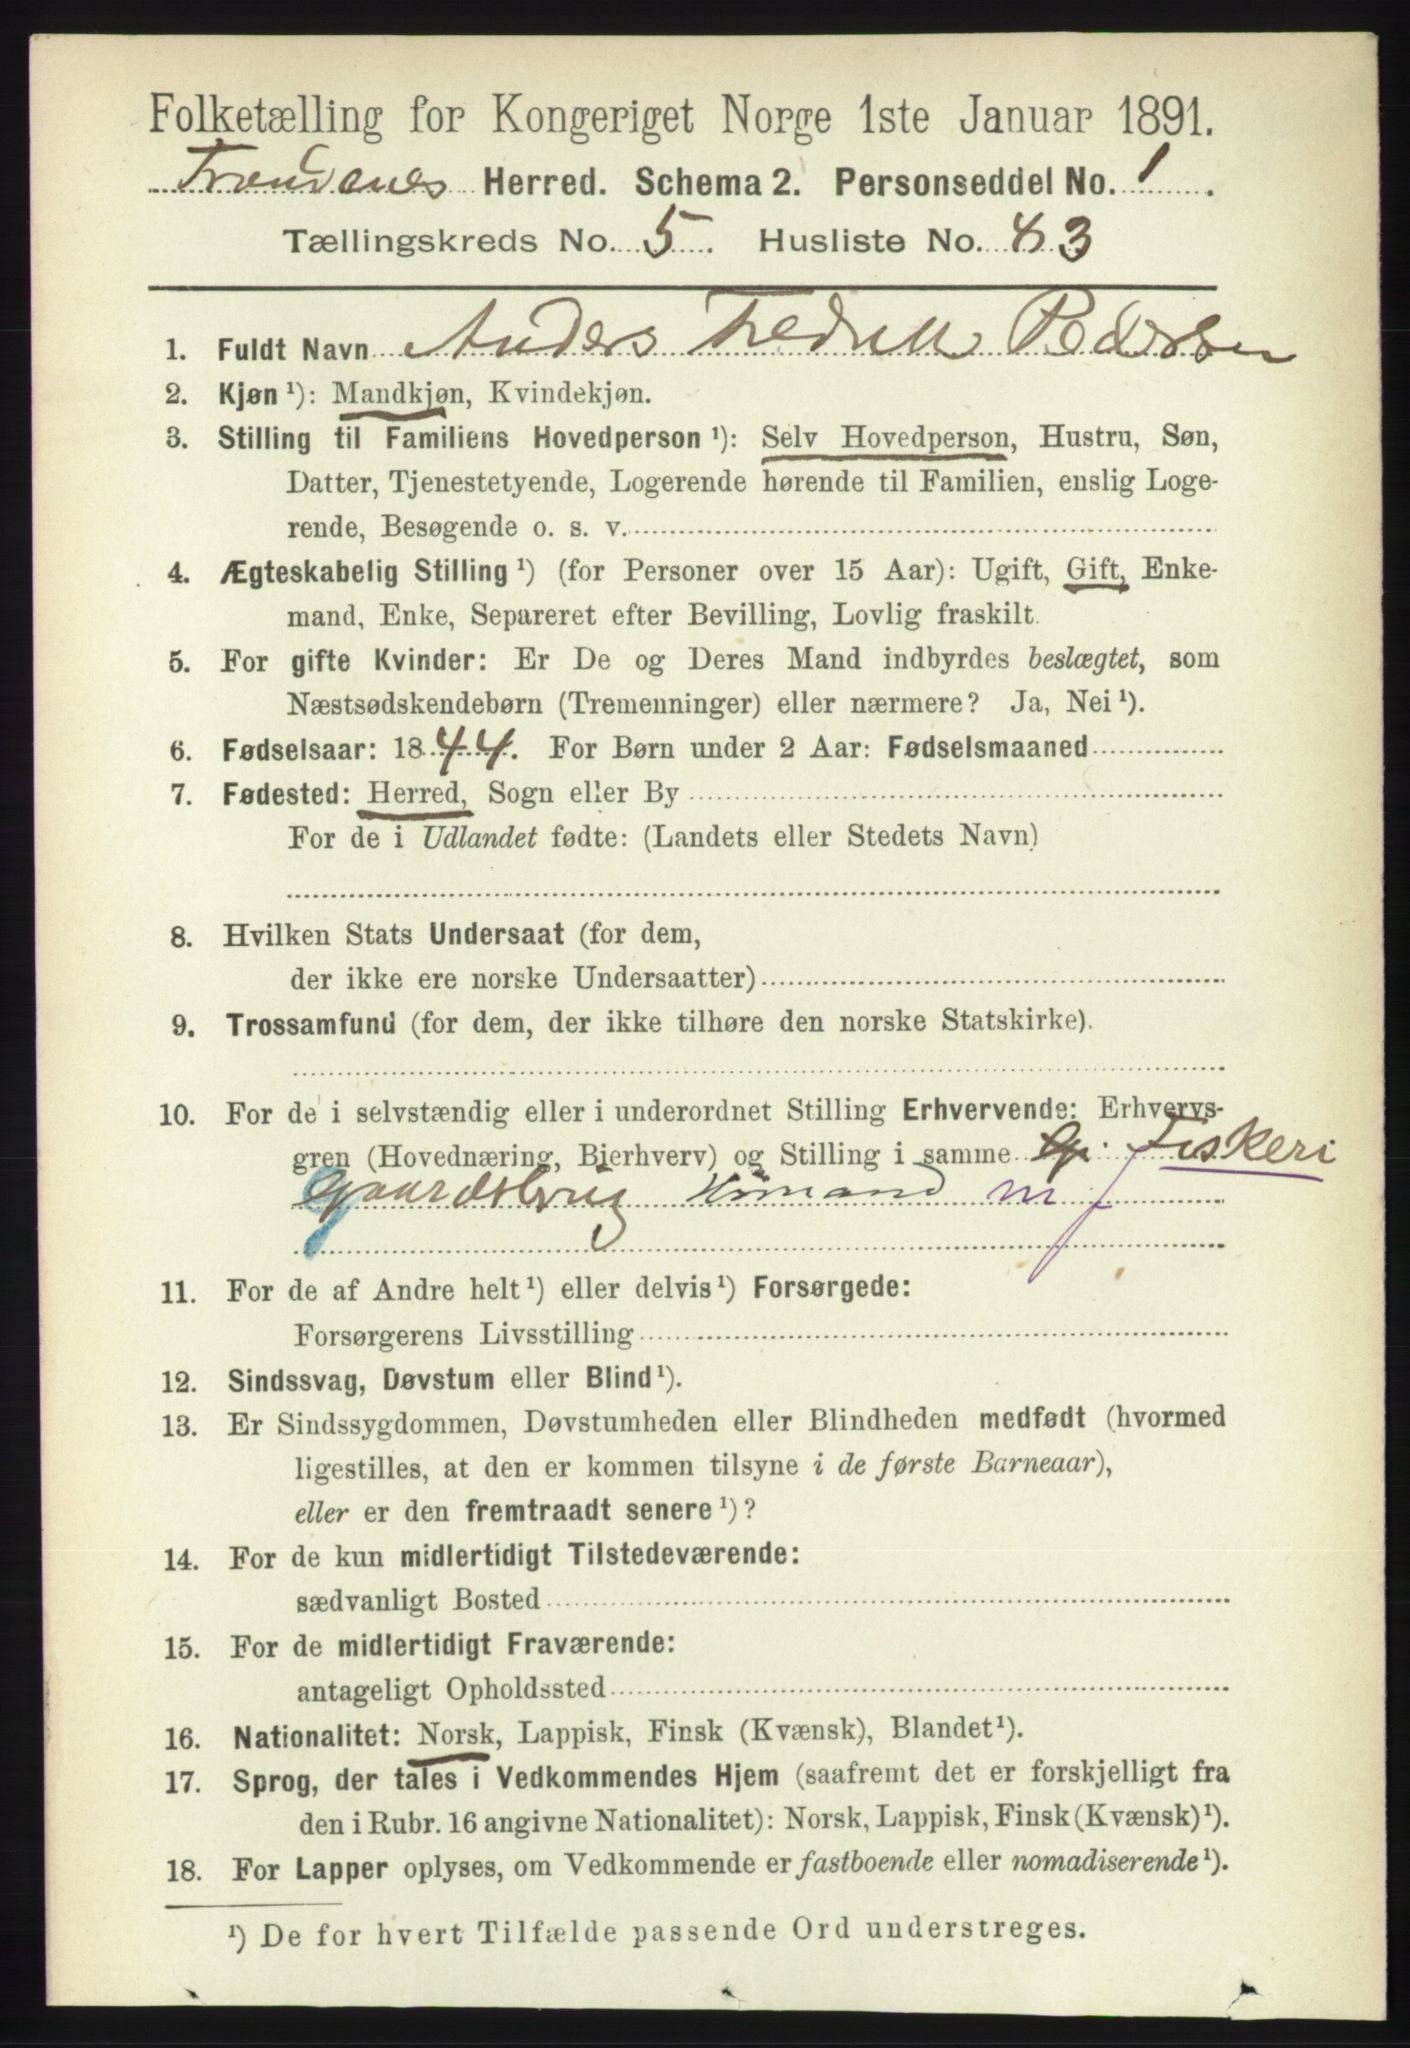 Folketælling for Kongeriget Norge 1ste Januar 1891.
Trondenes Herred. Schema 2. Personseddel No. 1.
Tællingskreds No. 5. Husliste No. 43
1. Fuldt Navn Anders Fredrik Pedersen
2. Kjøn ¹): Mandkjøn, Kvindekjøn.
3. Stilling til Familiens Hovedperson ¹): Selv Hovedperson, Hustru, Søn,
Datter, Tjenestetyende, Logerende hørende til Familien, enslig Loge-
rende, Besøgende o. s. v.
4. Ægteskabelig Stilling ¹) (for Personer over 15 Aar): Ugift, Gift, Enke-
mand, Enke, Separeret efter Bevilling, Lovlig fraskilt.
5. For gifte Kvinder: Er De og Deres Mand indbyrdes beslægtet, som
Næstsødskendebørn (Tremenninger) eller nærmere? Ja, Nei ¹).
6. Fødselsaar: 1844. For Børn under 2 Aar: Fødselsmaaned
7. Fødested: Herred, Sogn eller By
For de i Udlandet fødte: (Landets eller Stedets Navn)
8. Hvilken Stats Undersaat (for dem,
der ikke ere norske Undersaatter)
9. Trossamfund (for dem, der ikke tilhøre den norske Statskirke).
10. For de i selvstændig eller i underordnet Stilling Erhvervende: Erhvervs-
gren (Hovednæring, Bierhverv) og Stilling i samme Fiskeri
Gaardsbrug m f
11. For de af Andre helt ¹) eller delvis ¹) Forsørgede:
Forsørgerens Livsstilling
12. Sindssvag, Døvstum eller Blind ¹).
13. Er Sindssygdommen, Døvstumheden eller Blindheden medfødt (hvormed
ligestilles, at den er kommen tilsyne i de første Barneaar),
eller er den fremtraadt senere ¹)?
14. For de kun midlertidigt Tilstedeværende:
sædvanligt Bosted
15. For de midlertidigt Fraværende:
antageligt Opholdssted
16. Nationalitet: Norsk, Lappisk, Finsk (Kvænsk), Blandet ¹).
17. Sprog, der tales i Vedkommendes Hjem (saafremt det er forskjelligt fra
den i Rubr. 16 angivne Nationalitet): Norsk, Lappisk, Finsk (Kvænsk) ¹).
18. For Lapper oplyses, om Vedkommende er fastboende eller nomadiserende ¹).
¹) De for hvert Tilfælde passende Ord understreges.